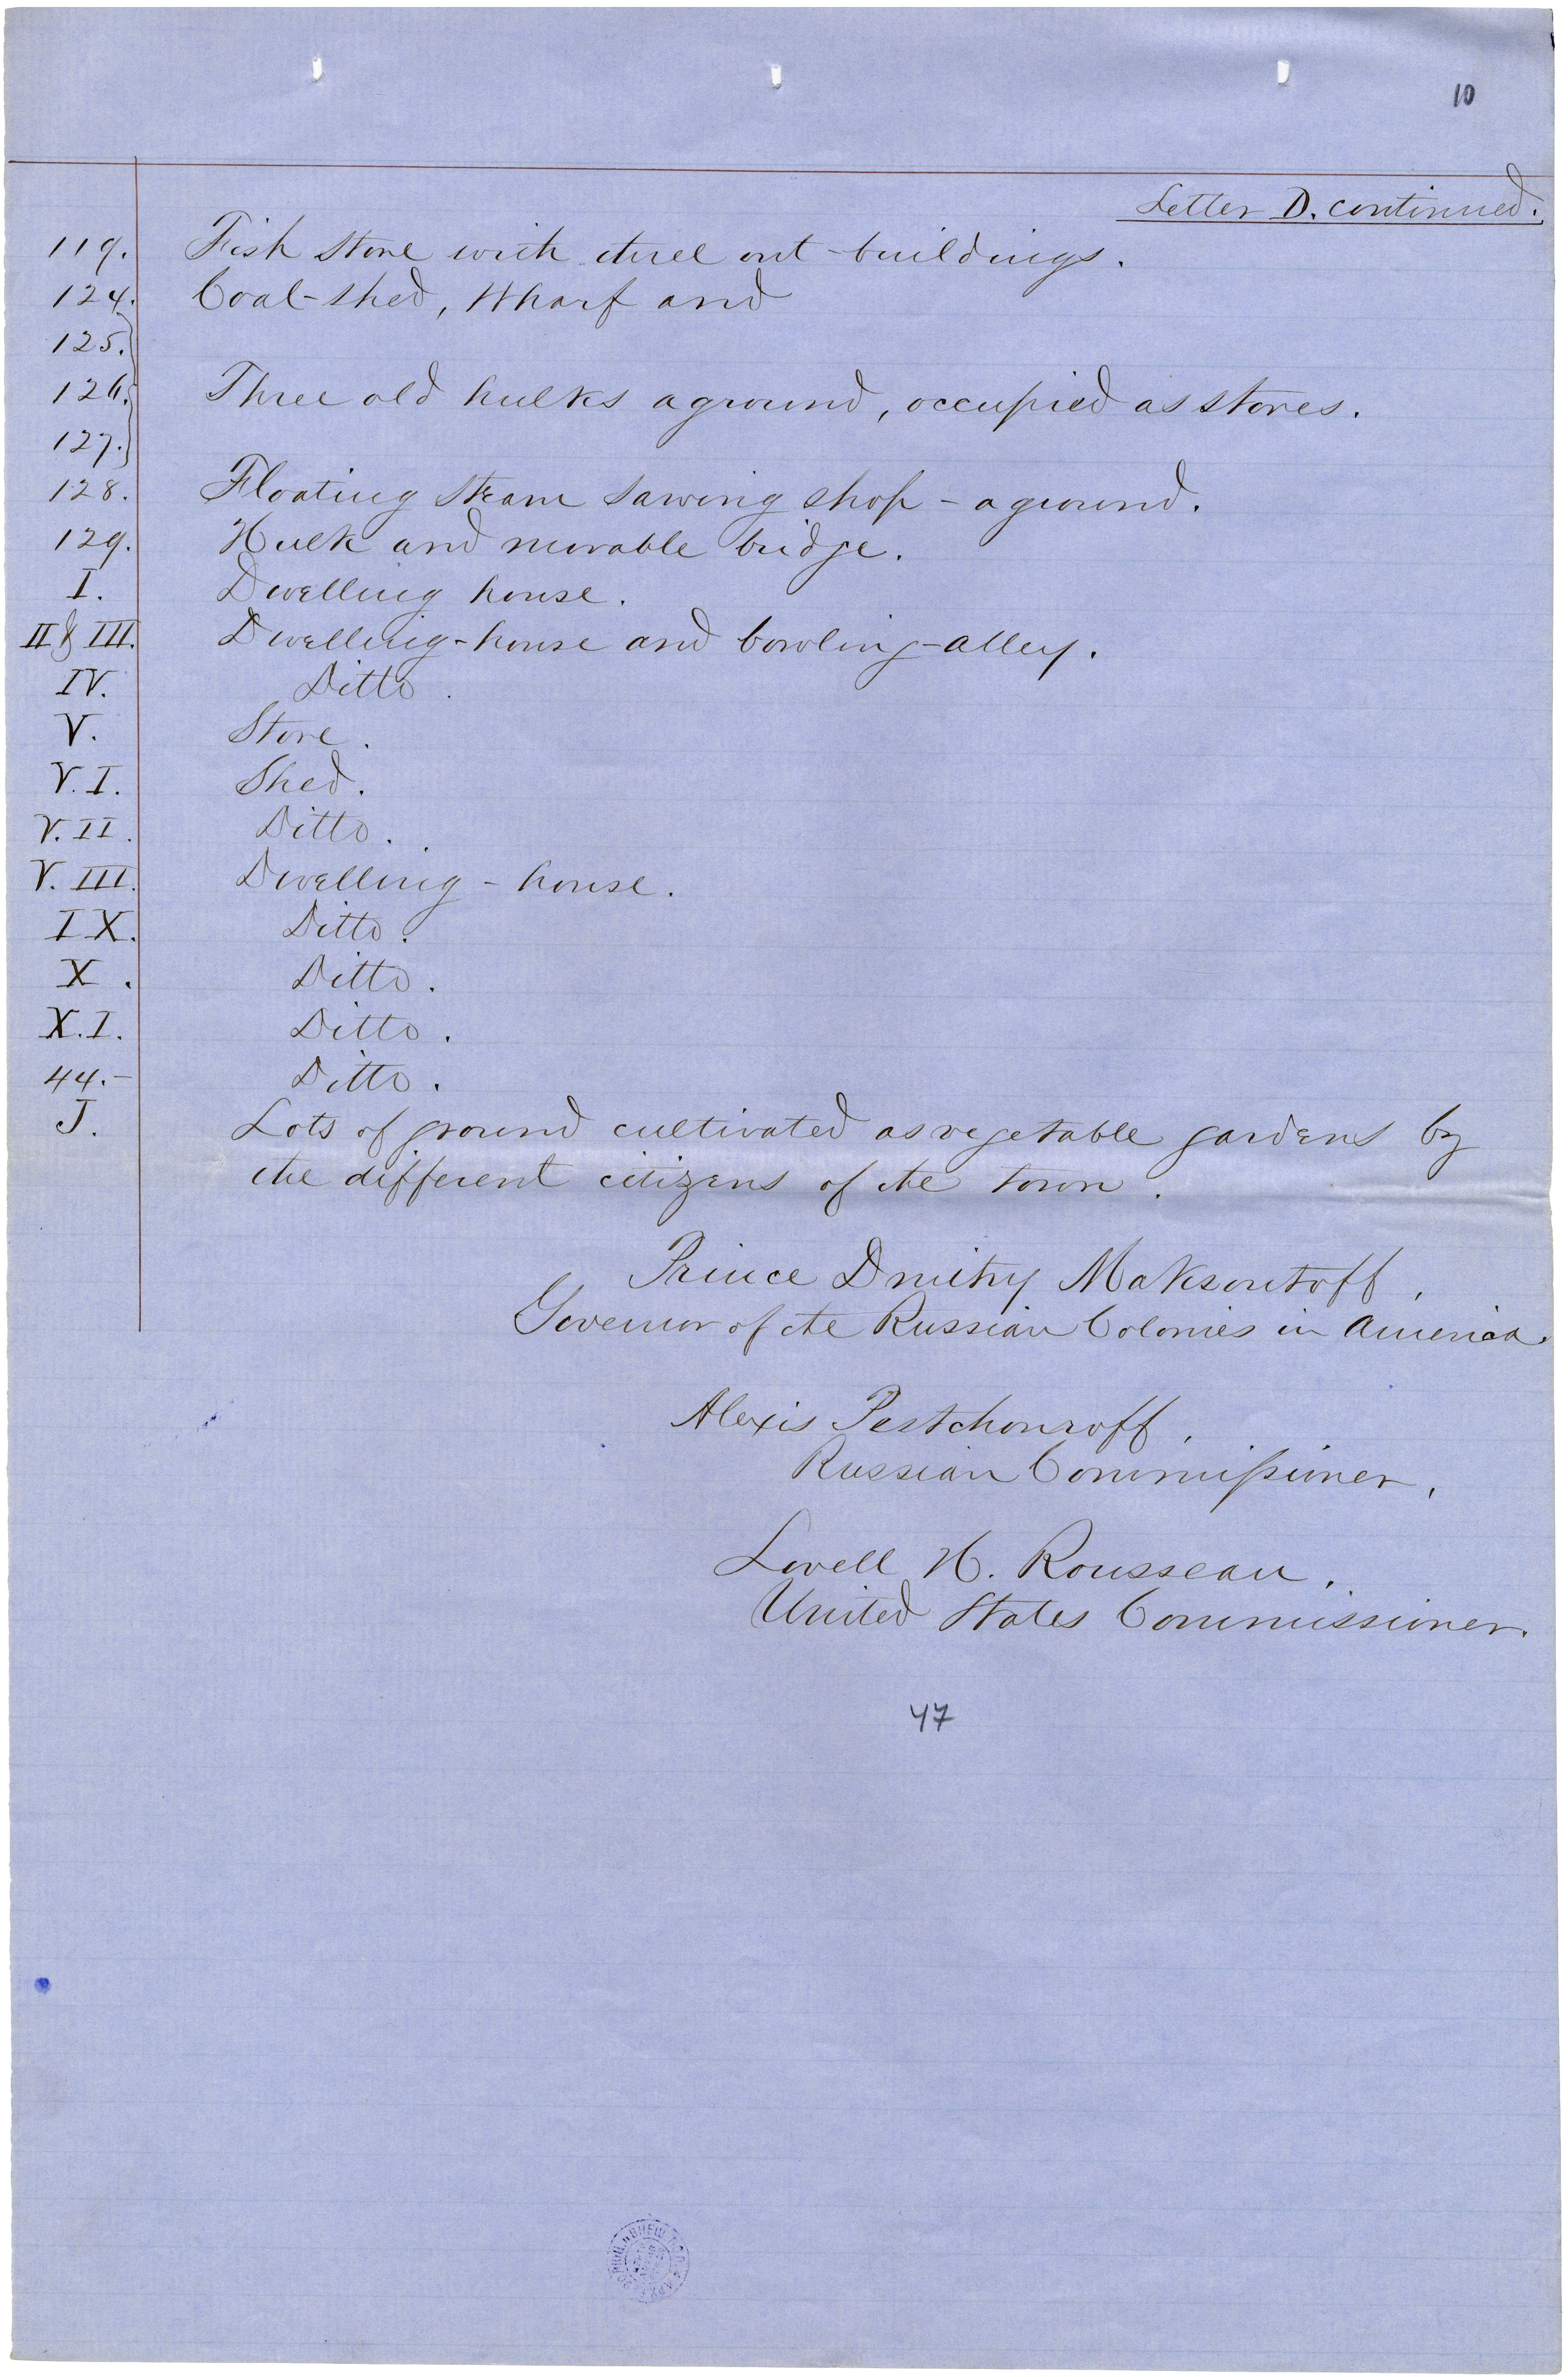 10
Letter D. continued.
119. Fish Store with three out-buildings.
124. Coal-shed, Wharf and
125.
126. Three old hulks aground, occupied as stores.
127.
128. Floating Steam Sawing shop - aground.
129. Hulk and movable bridge.
I. Dwelling house.
II & III. Dwelling-house and bowling-alley.
IV. Ditto.
V. Store.
V.I. Shed.
V.II. Ditto.
V.III. Dwelling-house.
IX. Ditto.
X. Ditto.
X.I. Ditto.
44.- Ditto.
J. Lots of ground cultivated as vegetable gardens by
the different citizens of the town.
Prince Dmitry Maksoutoff,
Governor of the Russian Colonies in America.
Alexis Pestchouroff,
Russian Commissioner,
Lovell H. Rousseau,
United States Commissioner.
47